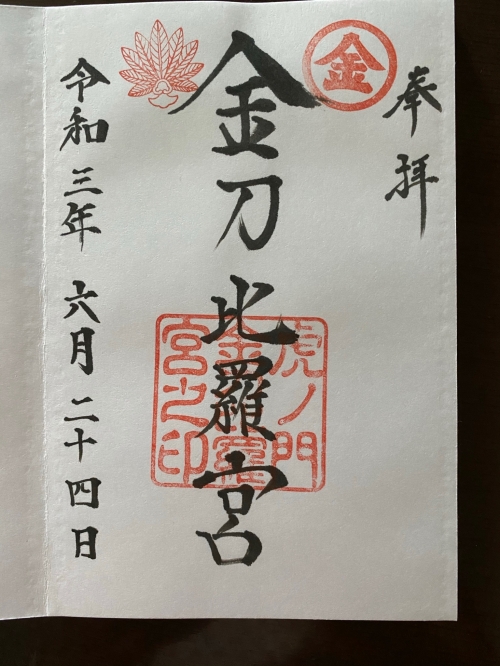 奉拝
金
金刀比羅宮
虎ノ門
金刀比羅
宮之印
令和三年 六月 二十四日